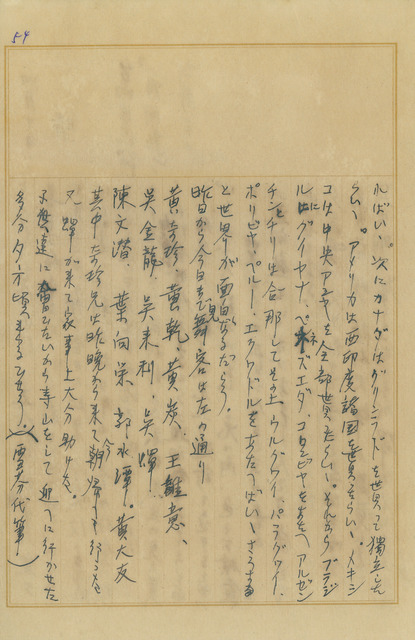 54
ればいゝ。次にカナダはグリンランドを貰って獨立した
らいゝ。アメリカは西印度諸國を貰ったらいゝ。メキシ
コは中央アメリカを全部貰ったらいゝ。それから ブラジ
ルにはグイヤナ、ベネズエダ、コロンビヤをあたへ アルゼン
チンとチリは合那してその上 ウルグワイ、パラグワイ、
ボリビヤ、ペルー、エクワドルをあたへばいゝ、さうする
と世界が面白くなるだらう。
昨日から今日まで見舞客は左の通り
黄奇珍、黄乾、黄炭、王 意、
吳金龍、吳来利、吳輝
陳文潜、葉向栄、郭水潭。黄大友
其中奇珍兄は昨晩から来て今朝帰って行った。
又 輝が来て家事上大分助けた。
子供達に会ひたいから 山をして迎へに行かせた
多分夕方頃来るだらう。（雪芬代筆）